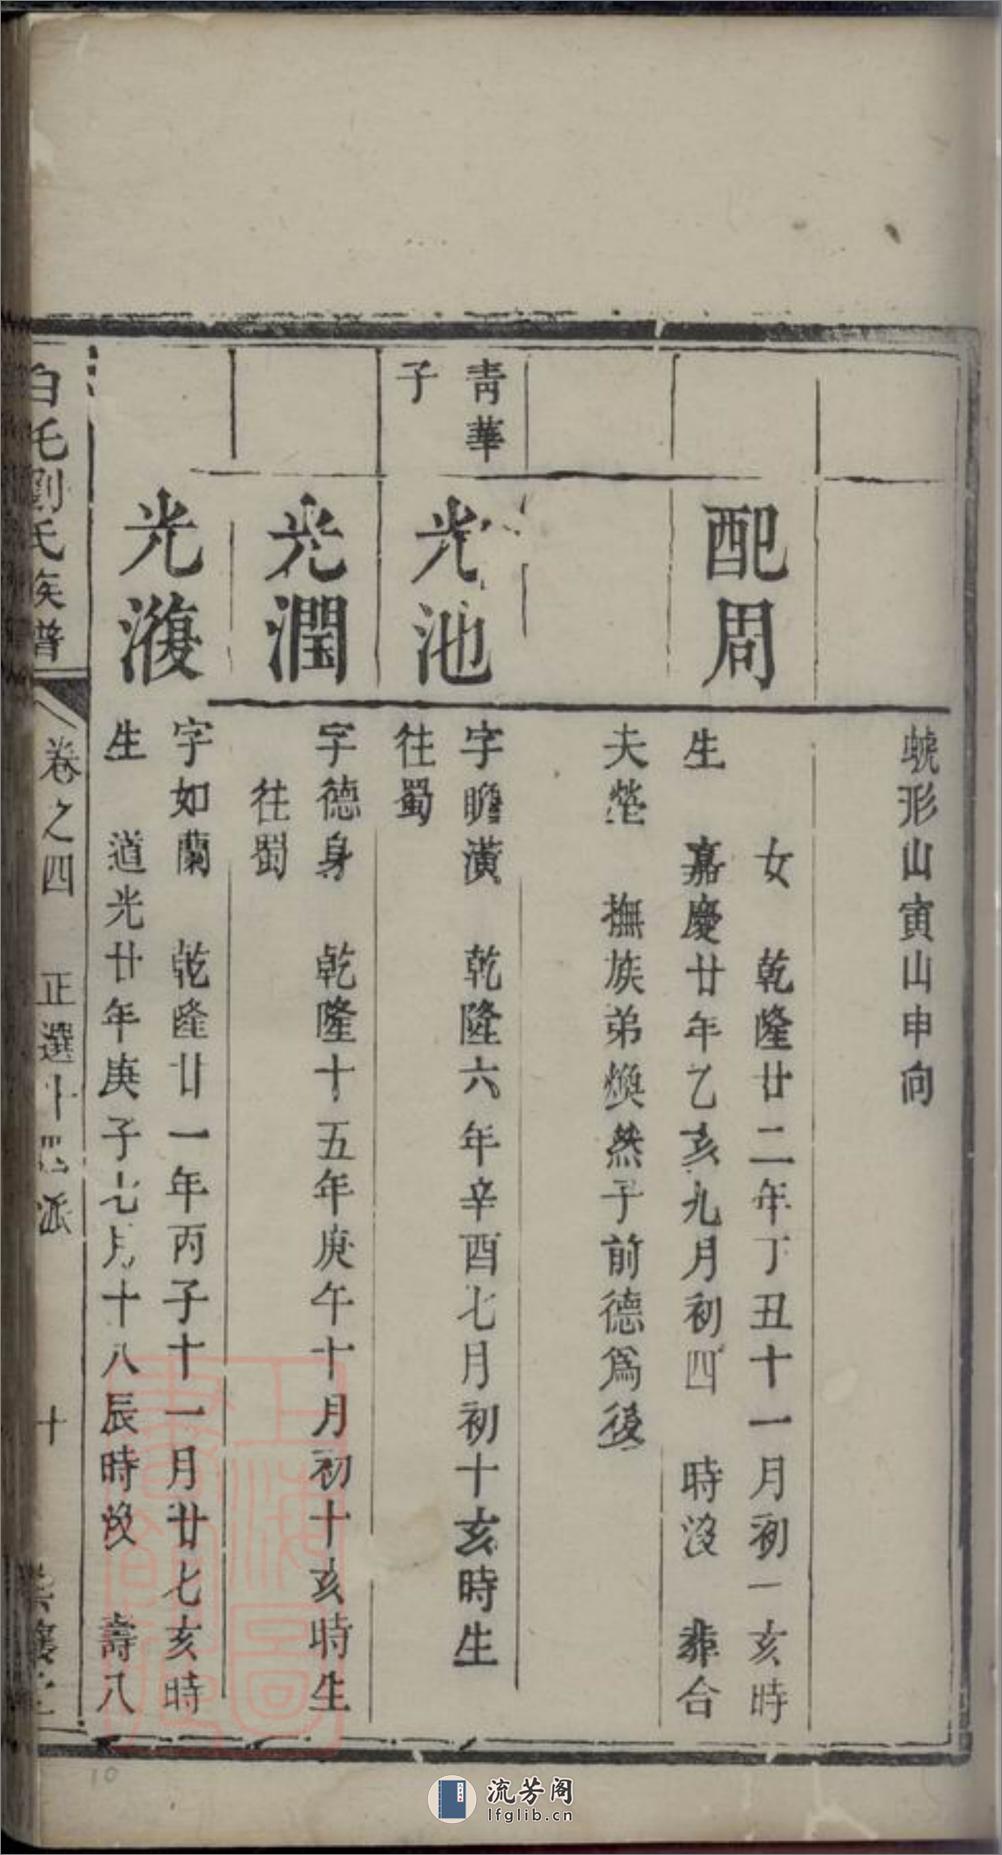 虩形山寅山申向
配周
女　乾隆廿二年丁丑十一月初一亥時
生　嘉慶廿年乙亥九月初四　時沒　葬合
夫塋　撫族弟煥然子前德爲後
青華
子
光池
字瞻潢　乾隆六年辛酉七月初十亥時生
往蜀
光潤
字德身　乾隆十五年庚午十月初十亥時生
往蜀
光澓
字如蘭　乾隆廿一年丙子十一月廿七亥時
生　道光廿年庚子七月十八辰時沒　壽八
白毛劉氏族譜
卷之四　正選十四派
十
上海圖書館藏
10
流芳阁
lfglib.cn